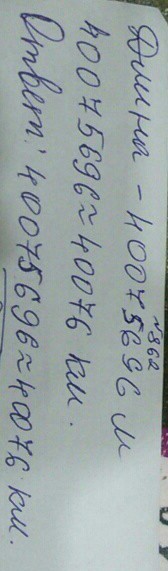 Длина - 40075696 м
40075696≈40076 км.
Ответ: 40075696≈40076 км.